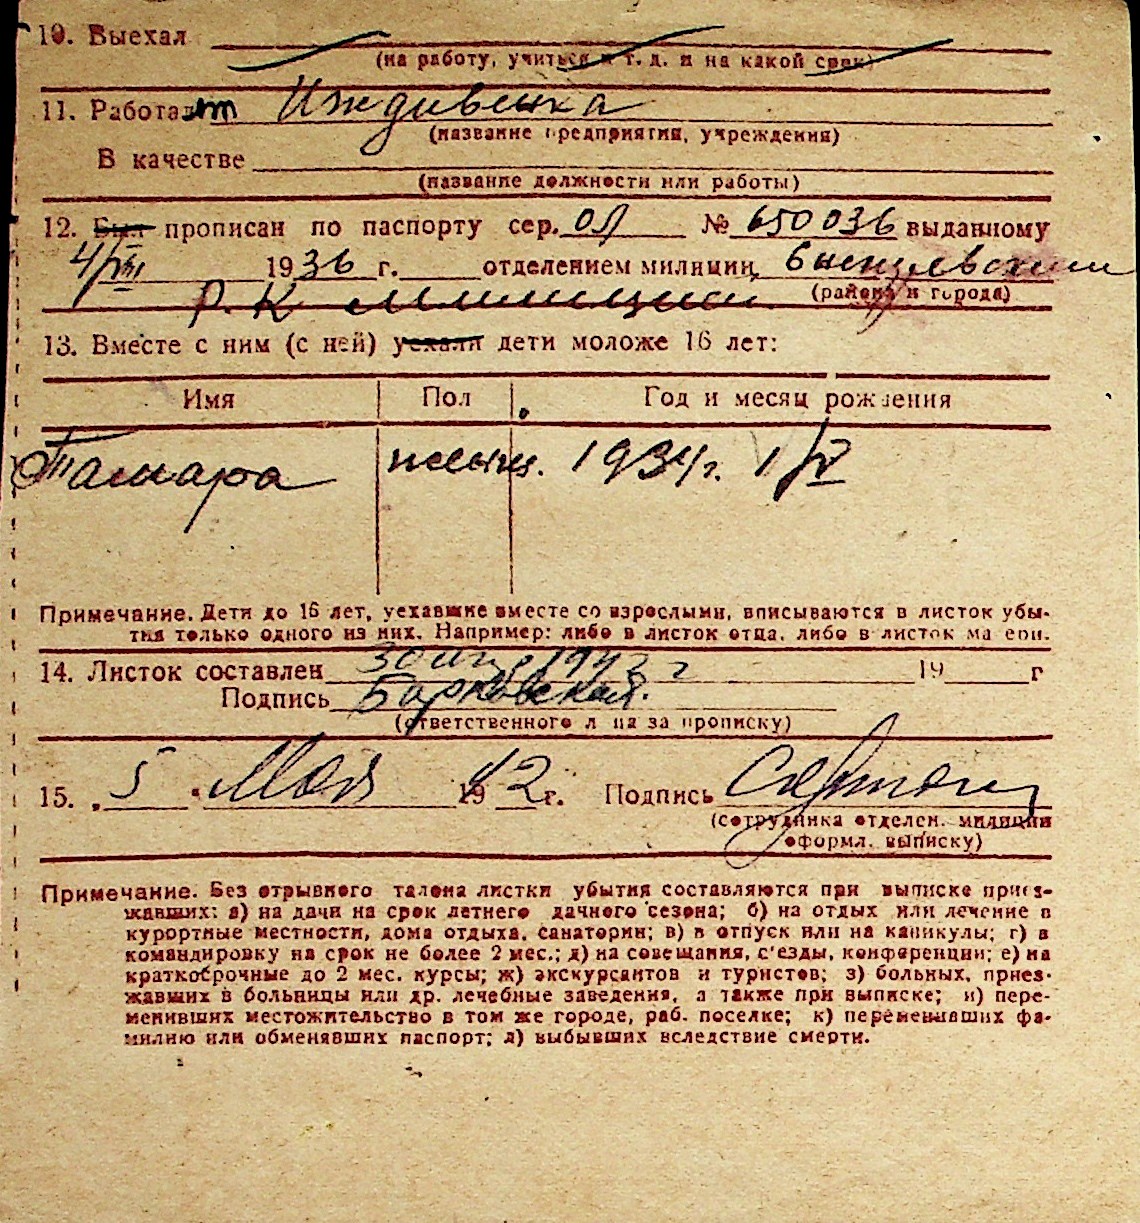 10. Выехал
(на работу, учиться и т. д. и на какой срок)
11. Работает Иждивенка
(название предприятия, учреждения)
В качестве
(название должности или работы)
12. Был прописан по паспорту сер. ОЯ № 650036 выданному
4/VIII 1936 г. отделением милиции
Р.К Милиции (района и города)
13. Вместе с ним (с ней) уехали дети моложе 16 лет:
Имя Пол Год и месяц рождения
Тамара женщ. 1934 г. 1/V
Примечание. Дети до 16 лет, уехавшие вместе со взрослыми, вписываются в листок убы-
тия только одного из них. Например: либо в листок отца, либо в листок матери.
14. Листок составлен 30 1942 г 19 г
Подпись Барковская.
(ответственного лица за прописку)
15. „5 " Мая 1942 г. Подпись
(сотрудника отделен. милиции
оформл. выписку)
Примечание. Без отрывного талона листки убытия составляются при выписке приез-
жавших: а) на дачи на срок летнего дачного сезона; б) на отдых или лечение в
курортные местности, дома отдыха, санатории; в) в отпуск или на каникулы; г) в
командировку на срок не более 2 мес.; д) на совещания, с'езды, конференции; е) на
краткосрочные до 2 мес. курсы; ж) экскурсантов и туристов; з) больных, приез-
жавших в больницы или др. лечебные заведения, а также при выписке; и) пере-
менивших местожительство в том же городе, раб. поселке; к) переменивших фа-
милию или обменявших паспорт; л) выбывших вследствие смерти.